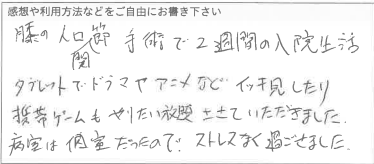 感想や利用方法などをご自由にお書き下さい
膝の人口関節 手術で2週間の入院生活
タブレットでドラマやアニメなど イッキ見したり
携帯ゲームも やりたい放題 させていただきました。
病室は個室だったので、ストレスなく過ごせました。